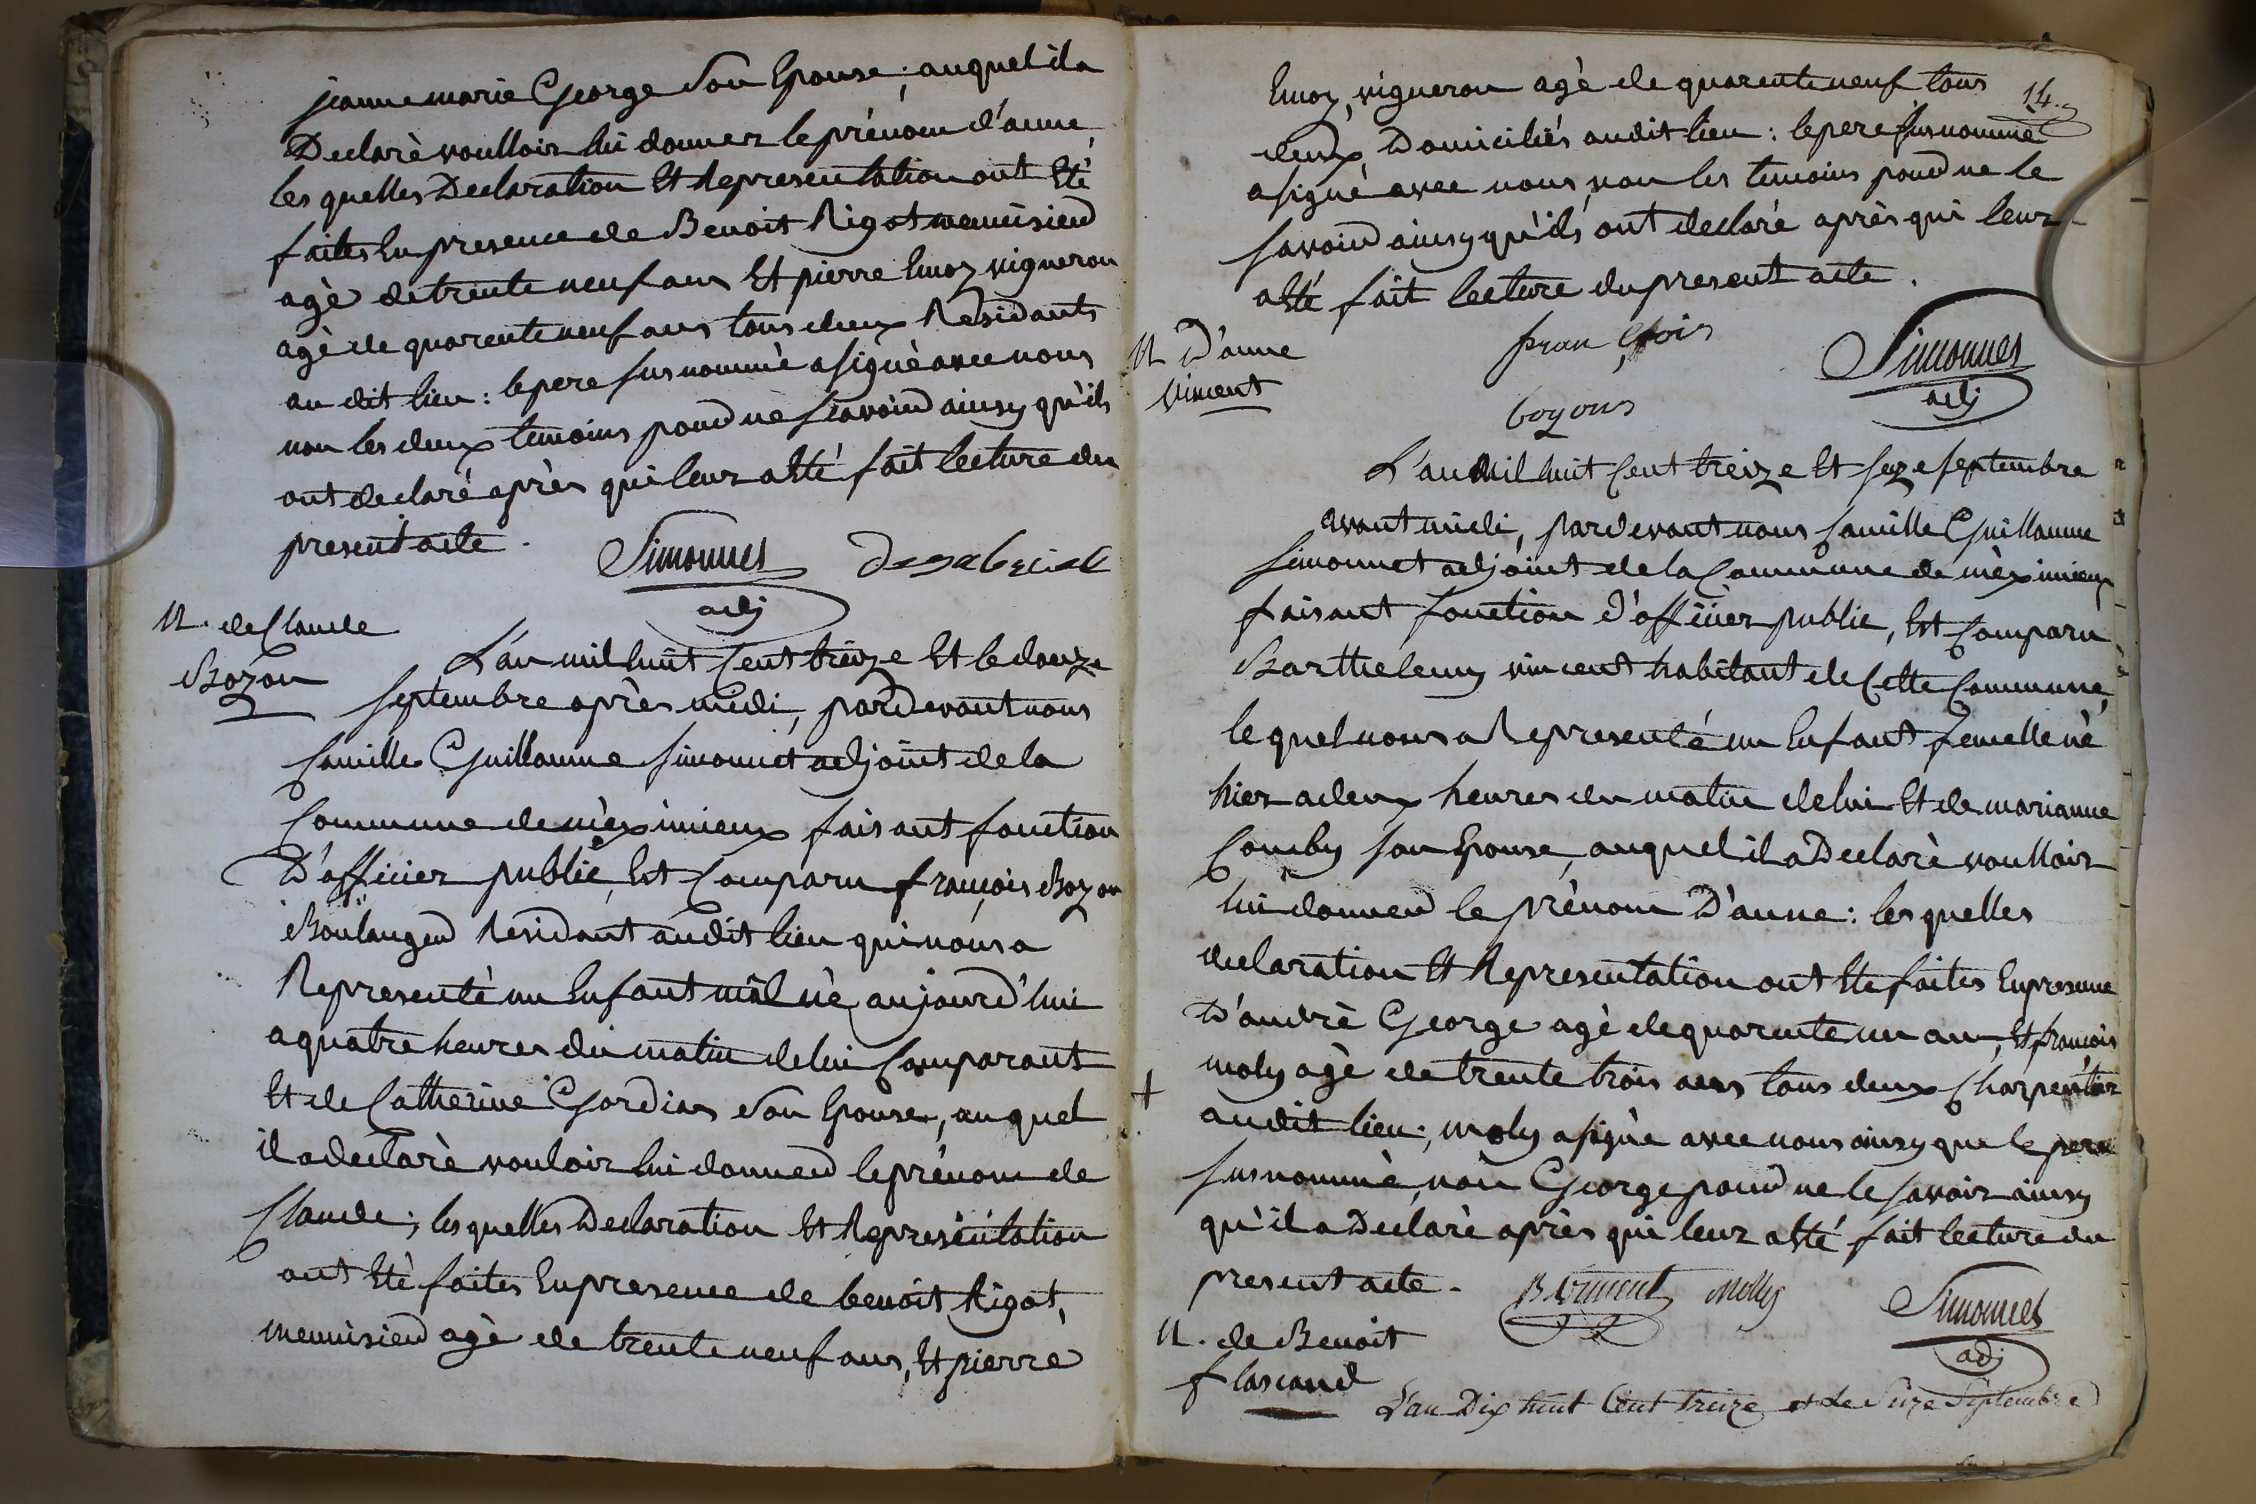 jeanne marie George Son Epouse; auquel il a
Declarè voulloir lui donner le prénom d'anne
les quelles Declaration Et Representation ont Eté
faites En presence de Benoit Rigot menuisier
agè de trente neuf ans Et pierre Emoz vigneron
agè de quarente neuf ans tous deux Residants
au dit lieu : le pere susnommè a signè avec nous
non les deux temoins pour ne sçavoir ainsy qu'ils
ont declaré après qui leur a Eté fait lecture du
present acte.
Simonnet
adj
N. de Claude
Bozon
L'an mil huit Cent treize Et le douze
septembre après midi, pardevant nous
Camille Guillaume Simonnet adjoint de la
Commune de mèximieux faisant fonction
D'officier public, Est Comparu françois Bozon
Boulanger Residant audit lieu qui nous a
Representè un Enfant mâl nè aujourd'hui
a quatre heures du matin de lui Comparant
Et de Catherine Gordian Son Epouse, auquel
il a declarè vouloir lui donner le prénom de
Claude; les quelles Declaration Et Representation
ont Etè faites En presence de benoit Rigot,
menuisier agè de trente neuf ans, Et pierre
14.
Emoz, vigneron agè de quarente neuf tous
deux Domiciliés audit lieu : le pere susnommé
a signé avec nous, non les temoins pour ne le
savoir ainsy qu'ils ont declaré après qui leur
a Eté fait lecture du present acte.
fran çois
boyons
Simonnet
adj
N. D'anne
Vincent
L'an Mil huit Cent treize Et seze septembre
avant midi, pardevant nous Camille Guillaume
Simonnet adjoint de la Commune de mèximieux
faisant fonction d'officier public, Est Comparu
Barthelemy vincent habitant de Cette Commune,
le quel nous a Representé un Enfant femelle nè
hier a deux heures du matin de lui Et de marianne
Comby son Epouse, auquel il a Declarè voulloir
lui donner le prènom D'anne : les quelles
declaration Et Representation ont Ete faites En presence
D'andrè George agè de quarente un an, Et françois
moly agè de trente trois ans tous deux Charpentier
audit lieu; moly a signè avec nous ainsy que le pere
susnommè, non George pour ne le savoir ainsy
qu'il a Declarè après qui leur a Eté fait lecture du
present acte.
B Vincent Molly
Simonnet
adj
N. de Benoit
flascand
L'an Dix huit Cent treize et le Seize Septembre